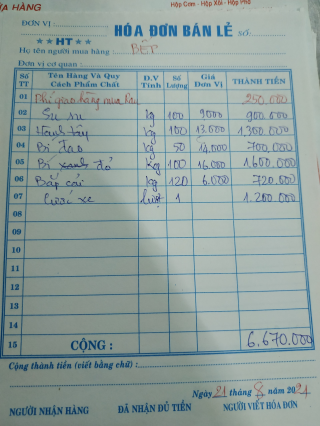 ỬA HÀNG
Hộp Cơm - Hộp Xôi - Hộp Phở
ĐƠN VỊ
HÓA ĐƠN BÁN LẺ SỐ:
★★HT★★
Họ tên người mua hàng BẾP
Đơn vị cơ quan :
Số TT Tên Hàng Và Quy Cách Phẩm Chất Đ.V Tính Số Lượng Giá Đơn Vị THÀNH TIỀN
01 Phí giao hàng mua 250.000
02 Su su kg 100 9000 900.000
03 Hành tây kg 100 13.000 1.300.000
04 Bí đao kg 50 14.000 700.000
05 Bí xanh đỏ Kg 100 16.000 1.600.000
06 Bắp cải Kg 120 6.000 720.000
07 Cước xe lượt 1 1.200.000
08
09
10
11
12
13
14
15 CỘNG : 6.670.000
Cộng thành tiền (viết bằng chữ) :
Ngày 21 tháng 8 năm 2024
NGƯỜI NHẬN HÀNG ĐÃ NHẬN ĐỦ TIỀN NGƯỜI VIẾT HÓA ĐƠN